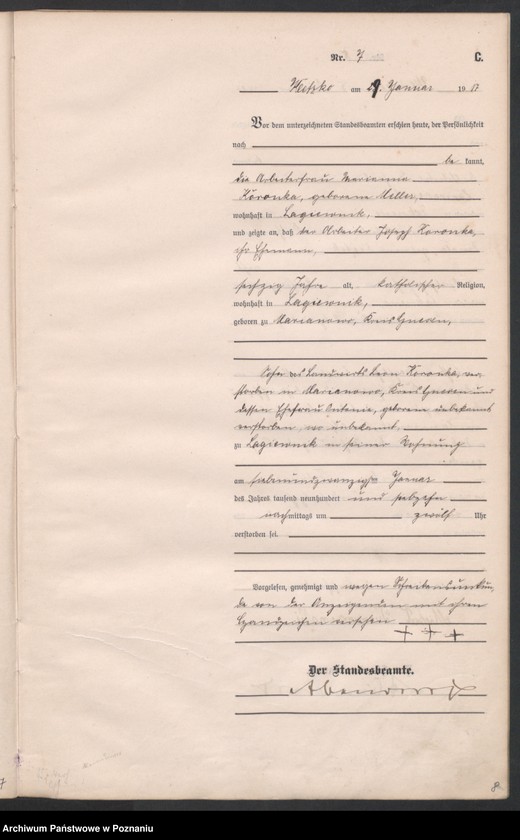 Nr. 7 C.
am 29. Januar 19 17
Vor dem unterzeichneten Standesbeamten erschien heute, der Persönlichkeit
nach
be kannt,
die Arbeiterfrau Marianna
Koronka, geborene Meller,
wohnhaft in Lagiewnik,
und zeigte an, daß der Arbeiter Joseph Koronka,
ihr Ehemann,
sechzig Jahre alt, katholischer Religion,
wohnhaft in Lagiewnik,
geboren zu Marianowo, Kreis Gnesen,
Sohn des Landwirts Leon Koronka, ver-
storben in Marianowo, Kreis Gnesen und
dessen Ehefrau Antonie, geborene unbekannt
verstorben, wo unbekannt,
zu Lagiewnik in seiner Wohnung
am siebenundzwanzigsten Januar
des Jahres tausend neunhundert und siebzehn
nachmittags um zwölf Uhr
verstorben sei.
Vorgelesen, genehmigt und wegen Schreibensunkun-
de von der Anzeigenden mit ihren
Handzeichen versehen
+ + +
Der Standesbeamte.
7
8
Archiwum Państwowe w Poznaniu